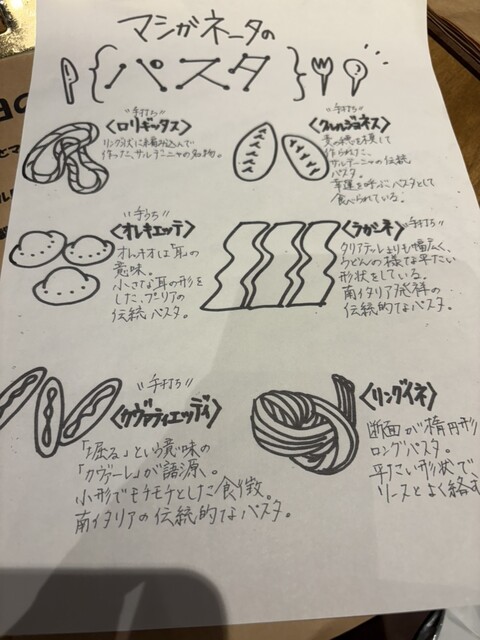 マシがネータの
パスタ
"手打ち"
〈ロリギッタス〉
リング状に編み込んで
作った、サルデーニャの名物。
"手打ち"
〈クルルジョネス〉
麦の穂を模して
作られた、
サルデーニャの伝統
パスタ。
幸運を呼ぶパスタとして
食べられている。
"手うち"
〈オレキエッテ〉
オレッキオは「耳」の
意味。
小さな耳の形を
した、プーリアの
伝統パスタ。
〈ラガネ〉"手打ち"
タリアテッレよりも幅広く、
うどんの様な平たい
形状をしている。
南イタリア発祥の
伝統的なパスタ。
"手打ち"
〈クヴァティエッディ〉
「掘る」という意味の
「クヴァーレ」が語源。
小形でモチモチとした食徴。
南イタリアの伝統的なパスタ。
〈リングイネ〉
断面が楕円形
ロングパスタ。
平たい形状で
ソースとよく絡む